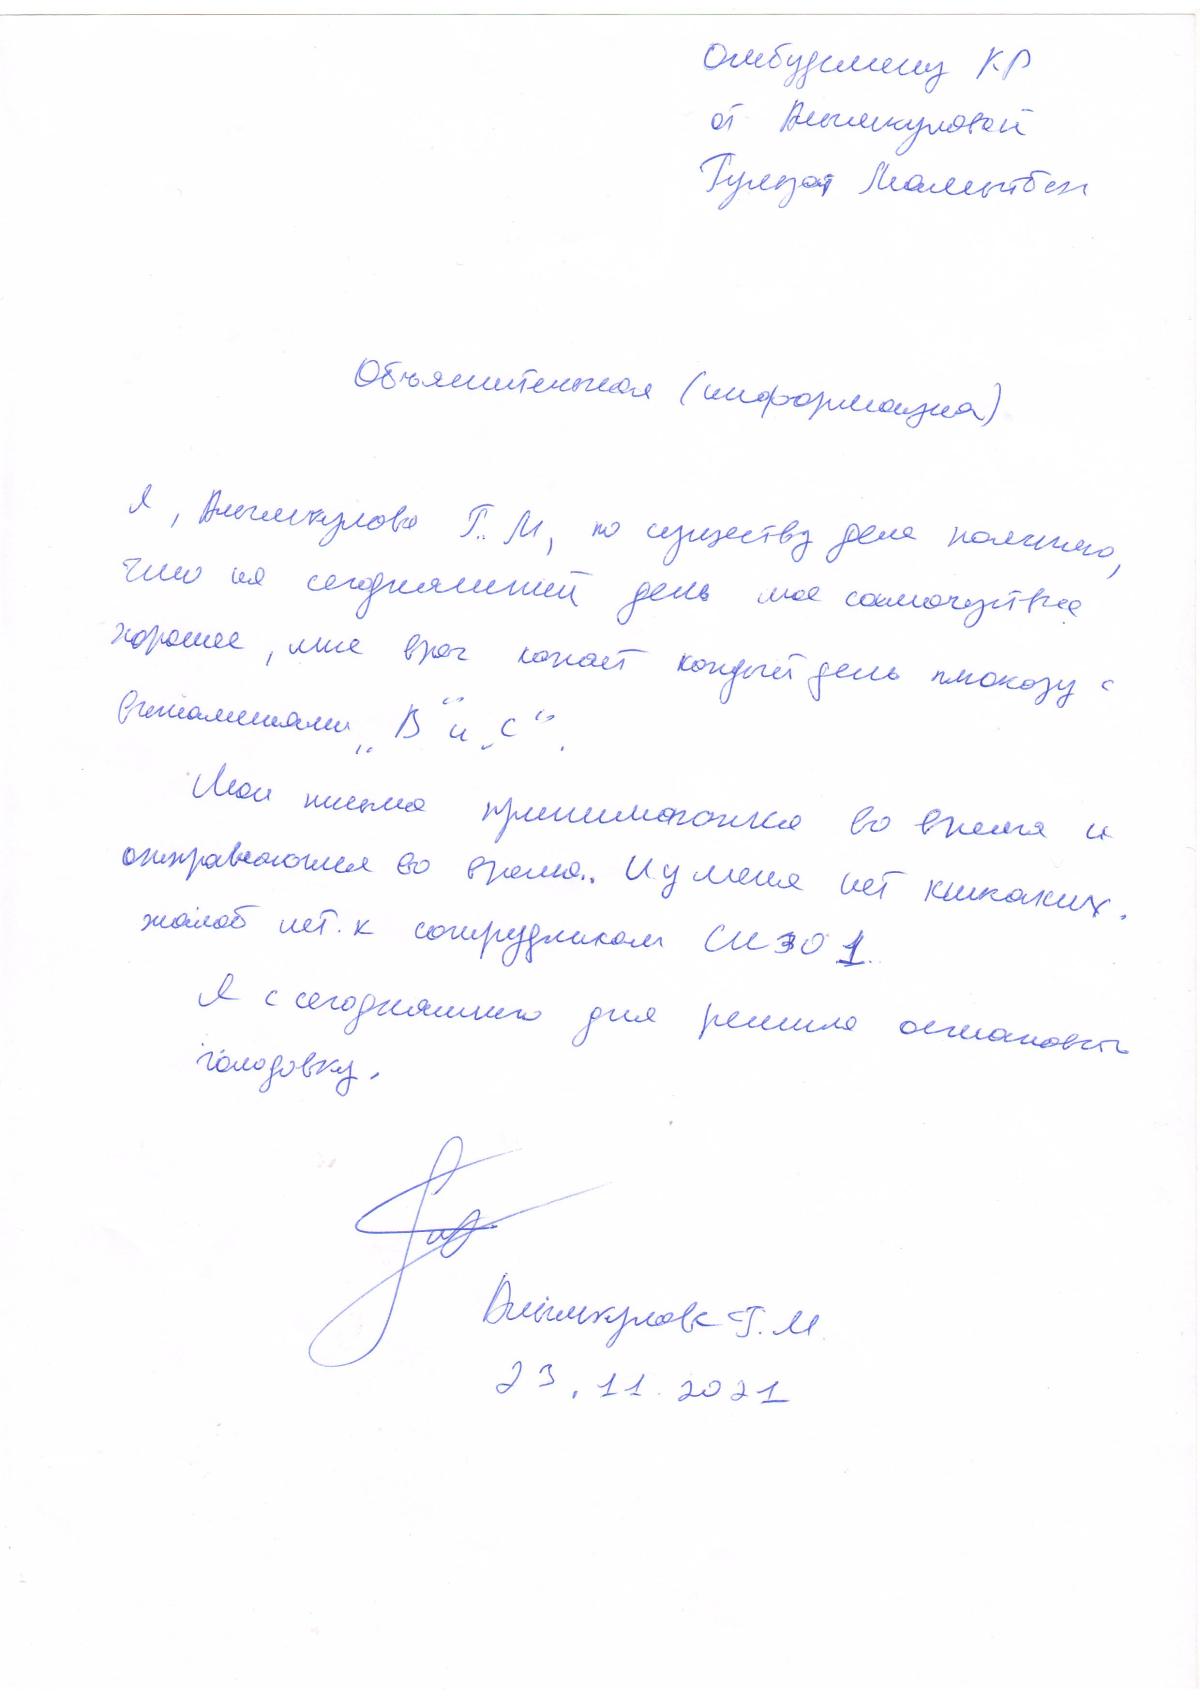 Омбудсмену КР
от Алымкуловой
Гулжат Мамытбек
Объяснительная (информация)
Я, Алымкулова Г. М, по существу дела поясняю,
что на сегодняшний день мое самочуствие
хорошее, мне врач капает каждый день глюкозу с
витаминами „В" и „С".
Мои письма принимаются во время и
отправляются во время.. И у меня нет никаких.
жалоб нет. к сотрудникам СИЗО 1.
Я с сегодняшнего дня решила остановить
голодовку.
Алымкулова Г. М
23.11.2021